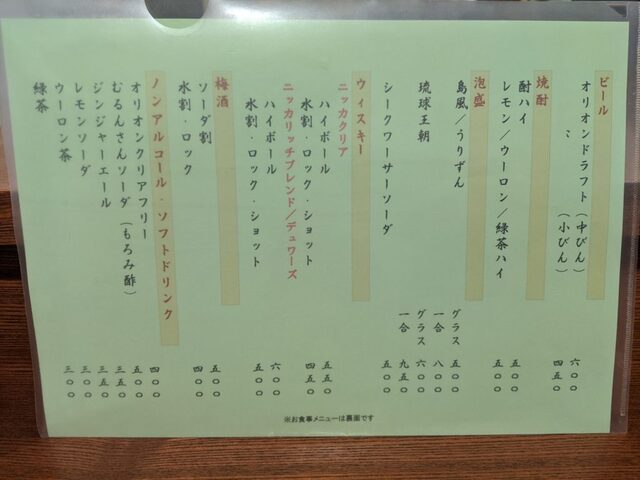 ビール
オリオンドラフト（中びん） 六〇〇
〃（小びん） 四五〇
焼酎
酎ハイ 五五〇
レモン／ウーロン／緑茶ハイ 五〇〇
泡盛
島風／うりずん グラス 五〇〇
一合 八〇〇
琉球王朝 グラス 六〇〇
一合 九五〇
シークワーサーソーダ 五〇〇
ウィスキー
ニッカクリア
ハイボール 五五〇
水割・ロック・ショット 四五〇
ニッカリッチブレンド／デュワーズ
ハイボール 六〇〇
水割・ロック・ショット 五〇〇
梅酒
ソーダ割 五〇〇
水割・ロック 四〇〇
ノンアルコール・ソフトドリンク
オリオンクリアフリー 四〇〇
むるんさんソーダ（もろみ酢） 五〇〇
ジンジャーエール 三五〇
レモンソーダ 三五〇
ウーロン茶 三〇〇
緑茶 三〇〇
※お食事メニューは裏面です